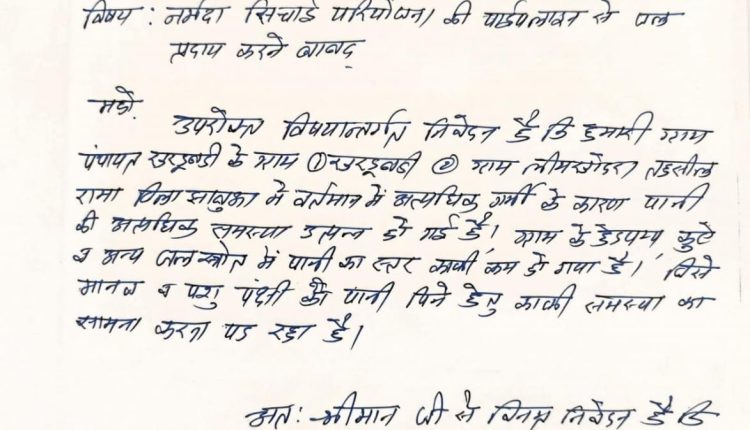 विषय : नर्मदा सिचाई परियोजना की पाईपलाइन से जल
प्रदाय करने बाबद्
महो.
उपरोक्त विषयान्तर्गत निवेदन है कि हमारी ग्राम
पंचायत खरडूबडी के ग्राम ① खरडूबडी ② ग्राम लीमखोदरा तहसील
रामा जिला झाबुआ मे वर्तमान में अत्यधिक गर्मी के कारण पानी
की अत्यधिक समस्या उत्पन्न हो गई है, ग्राम के हेडपम्प, कुऐ
व अन्य जलस्त्रोत में पानी का स्तर काफी कम हो गया है। जिसे
मानव व पशु पक्षी को पानी पिने हेतु काफी समस्या का
सामना करना पड रहा है।
अतः श्रीमान जी से विनम्र निवेदन है कि